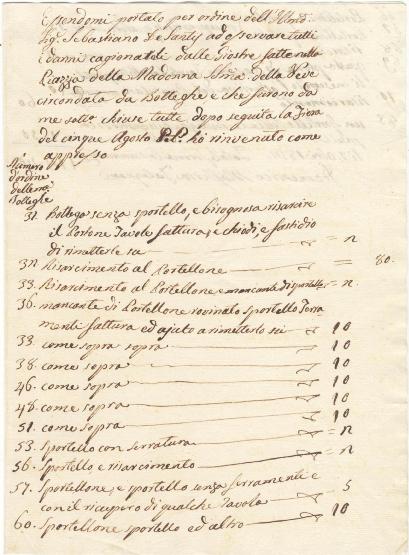 Essendomi portato per ordine dell'Illmo:
Sig. Sebastiano De Santis ad osservare tutti
Edanni cagionati dalle Giostre fatte nella
Piazza della Madonna Sma. della Neve
circondata da Botteghe e che furono da
me sotto. chiuse tutte dopo seguita la Fiera
del cinque Agosto P.P. hò rinvenuto come
appresso
Numero
d'ordine
delle
Botteghe
31. Bottega senza sportello, e bisognosa risarcire
il Portone Tavole fattura, e chiodi, e fastidio
di rimetterle
32. Risarcimento al Portellone = 80.
33. Risarcimento al Portellone e mancante di sportello
36. mancante di Portellone rovinato sportello Ferra
menti fattura ed ajuto a rimetterlo 10
33. come sopra sopra 10
38. come sopra 10
46. come sopra 10
48. come sopra 10
51. come sopra 10
53. Sportello con serratura
56. Sportello e risarcimento
57. Sportellone, e sportello senza ferramenti e
con il ricupero di qualche Tavola 5
60. Sportellone sportello ed altro 10